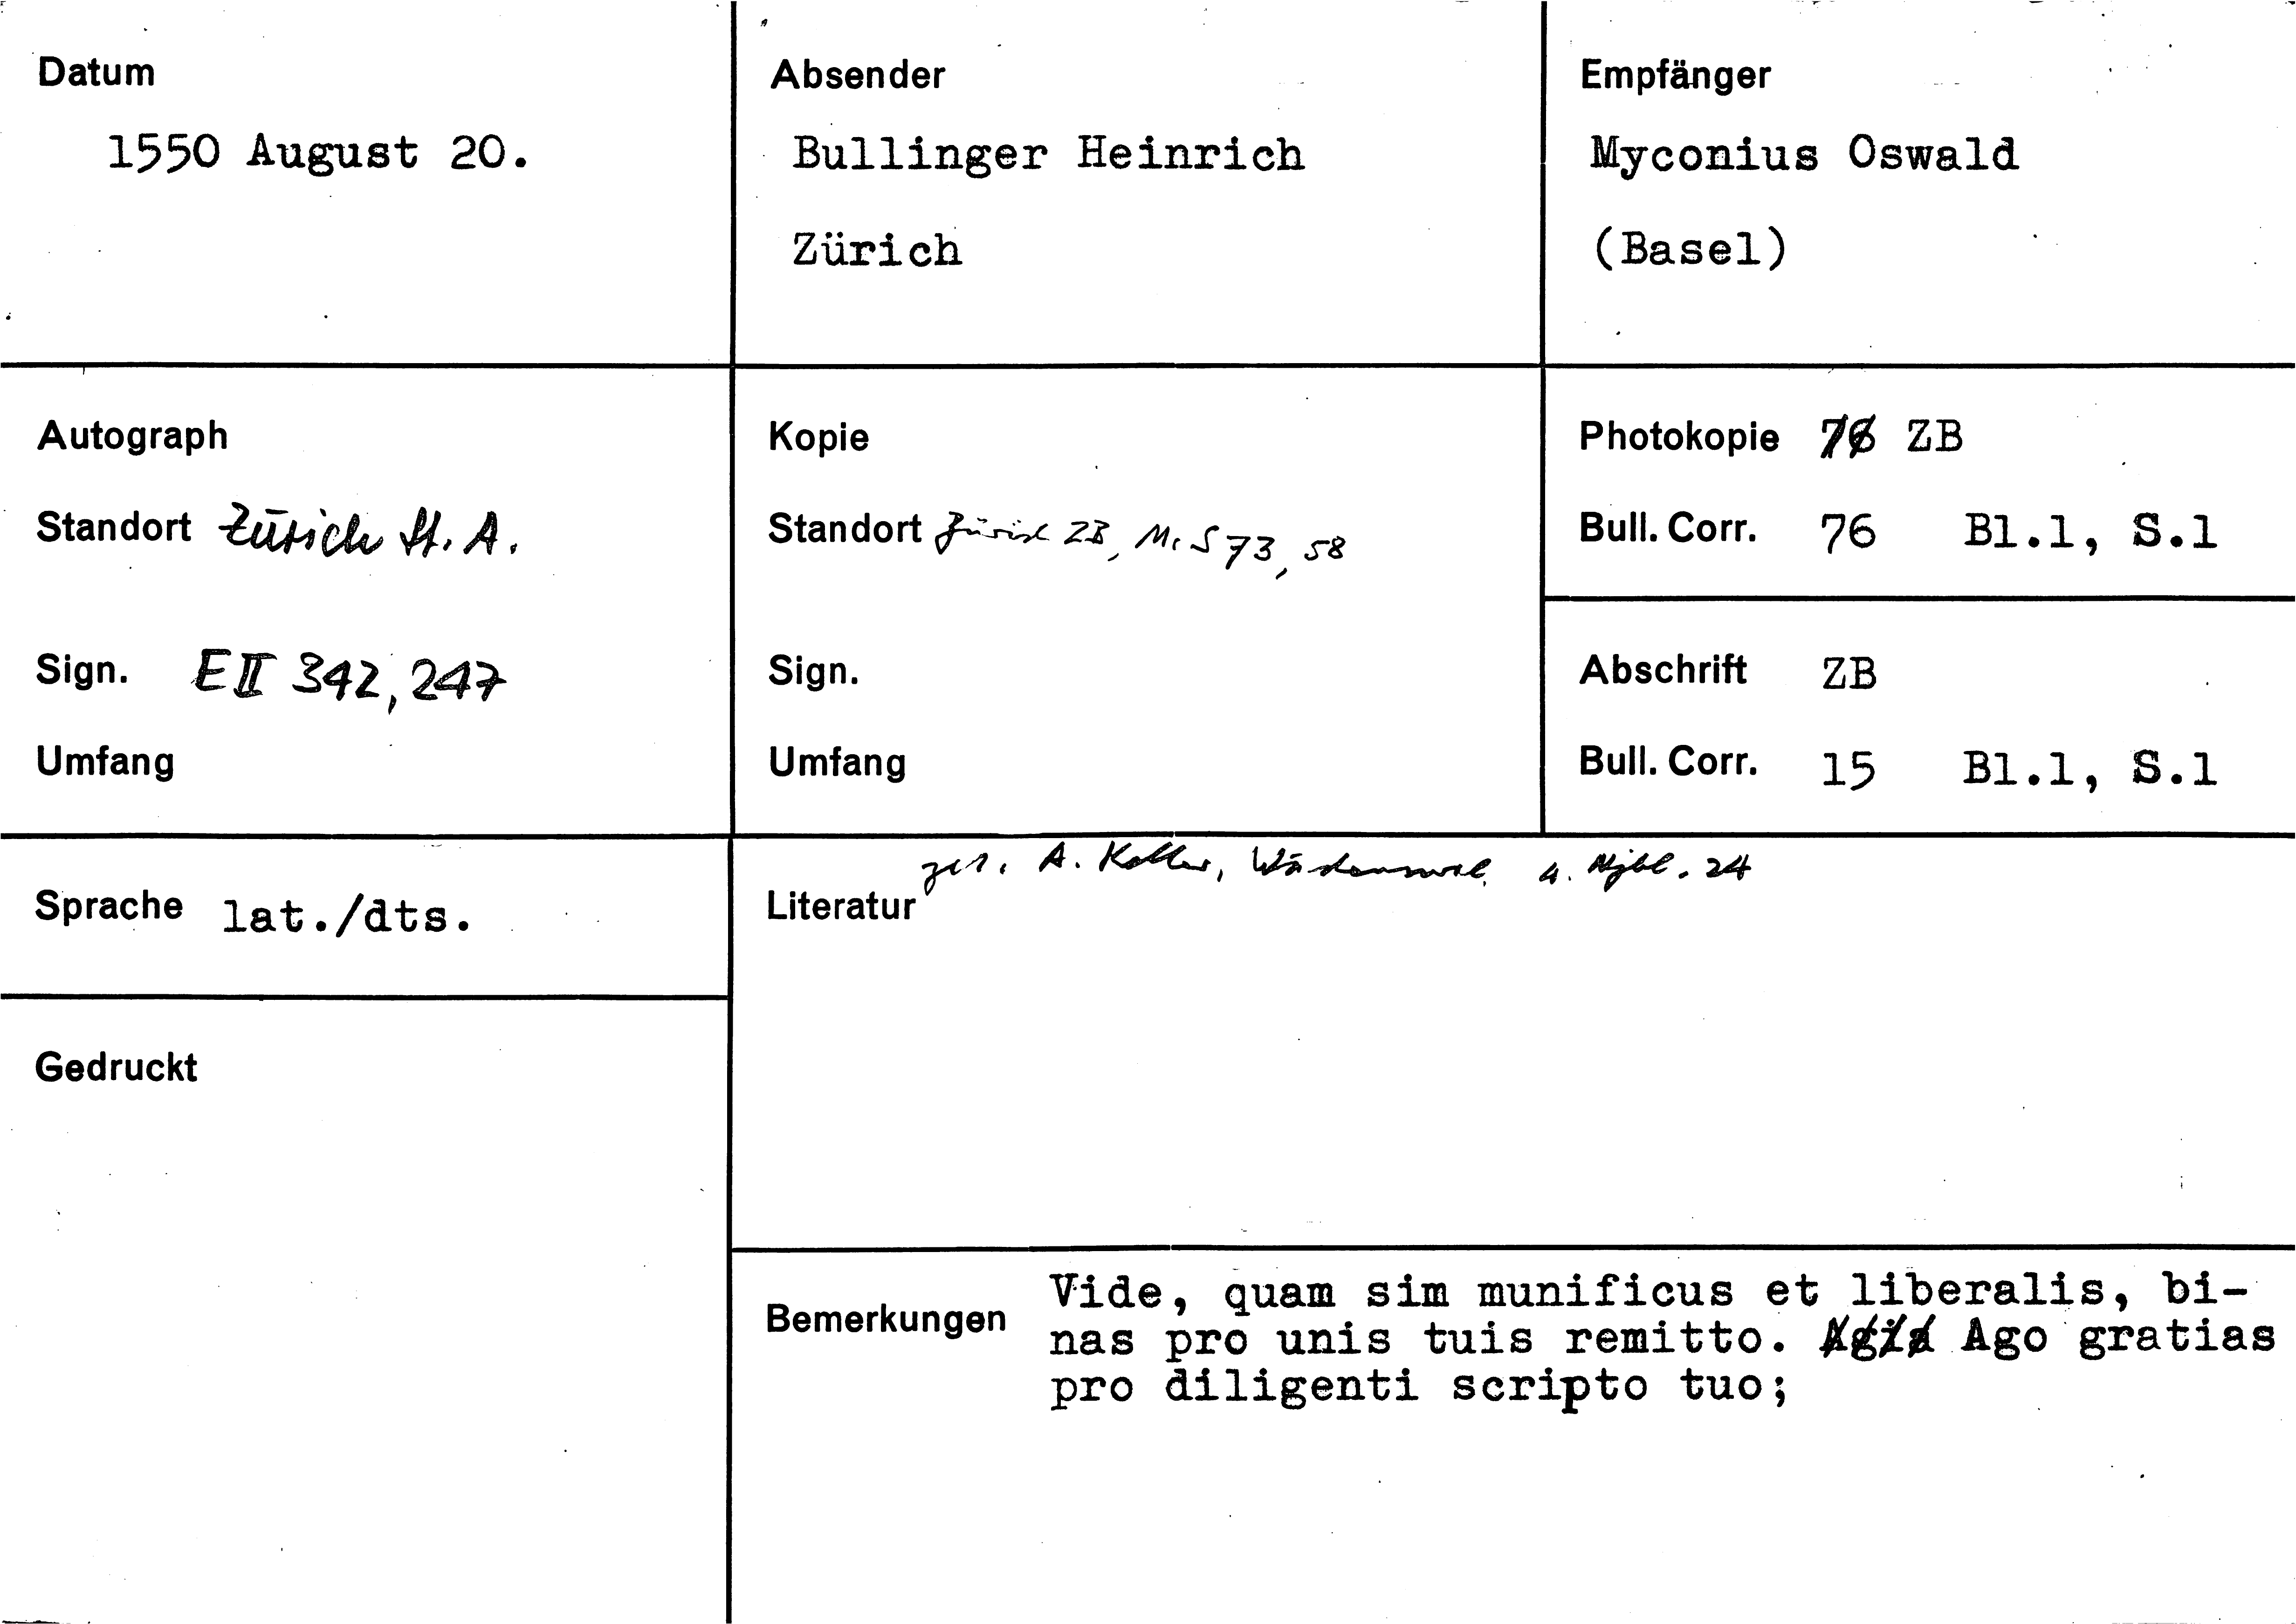 Datum
1550 August 20.
Absender
Bullinger Heinrich
Zürich
Empfänger
Myconius Oswald
(Basel)
Autograph
Standort Zürich St. A.
Sign. E II 342, 247
Umfang
Kopie
Standort Zürich ZB, Ms S 73, 58
Sign.
Umfang
Photokopie 76 ZB
Bull. Corr. 76 Bl.1, S.1
Abschrift ZB
Bull. Corr. 15 Bl.1, S.1
Sprache lat./dts.
Gedruckt
A. Keller, 24
Literatur
Bemerkungen
Vide, quam sim munificus et liberalis, bi-
nas pro unis tuis remitto. Ago gratias
pro diligenti scripto tuo;